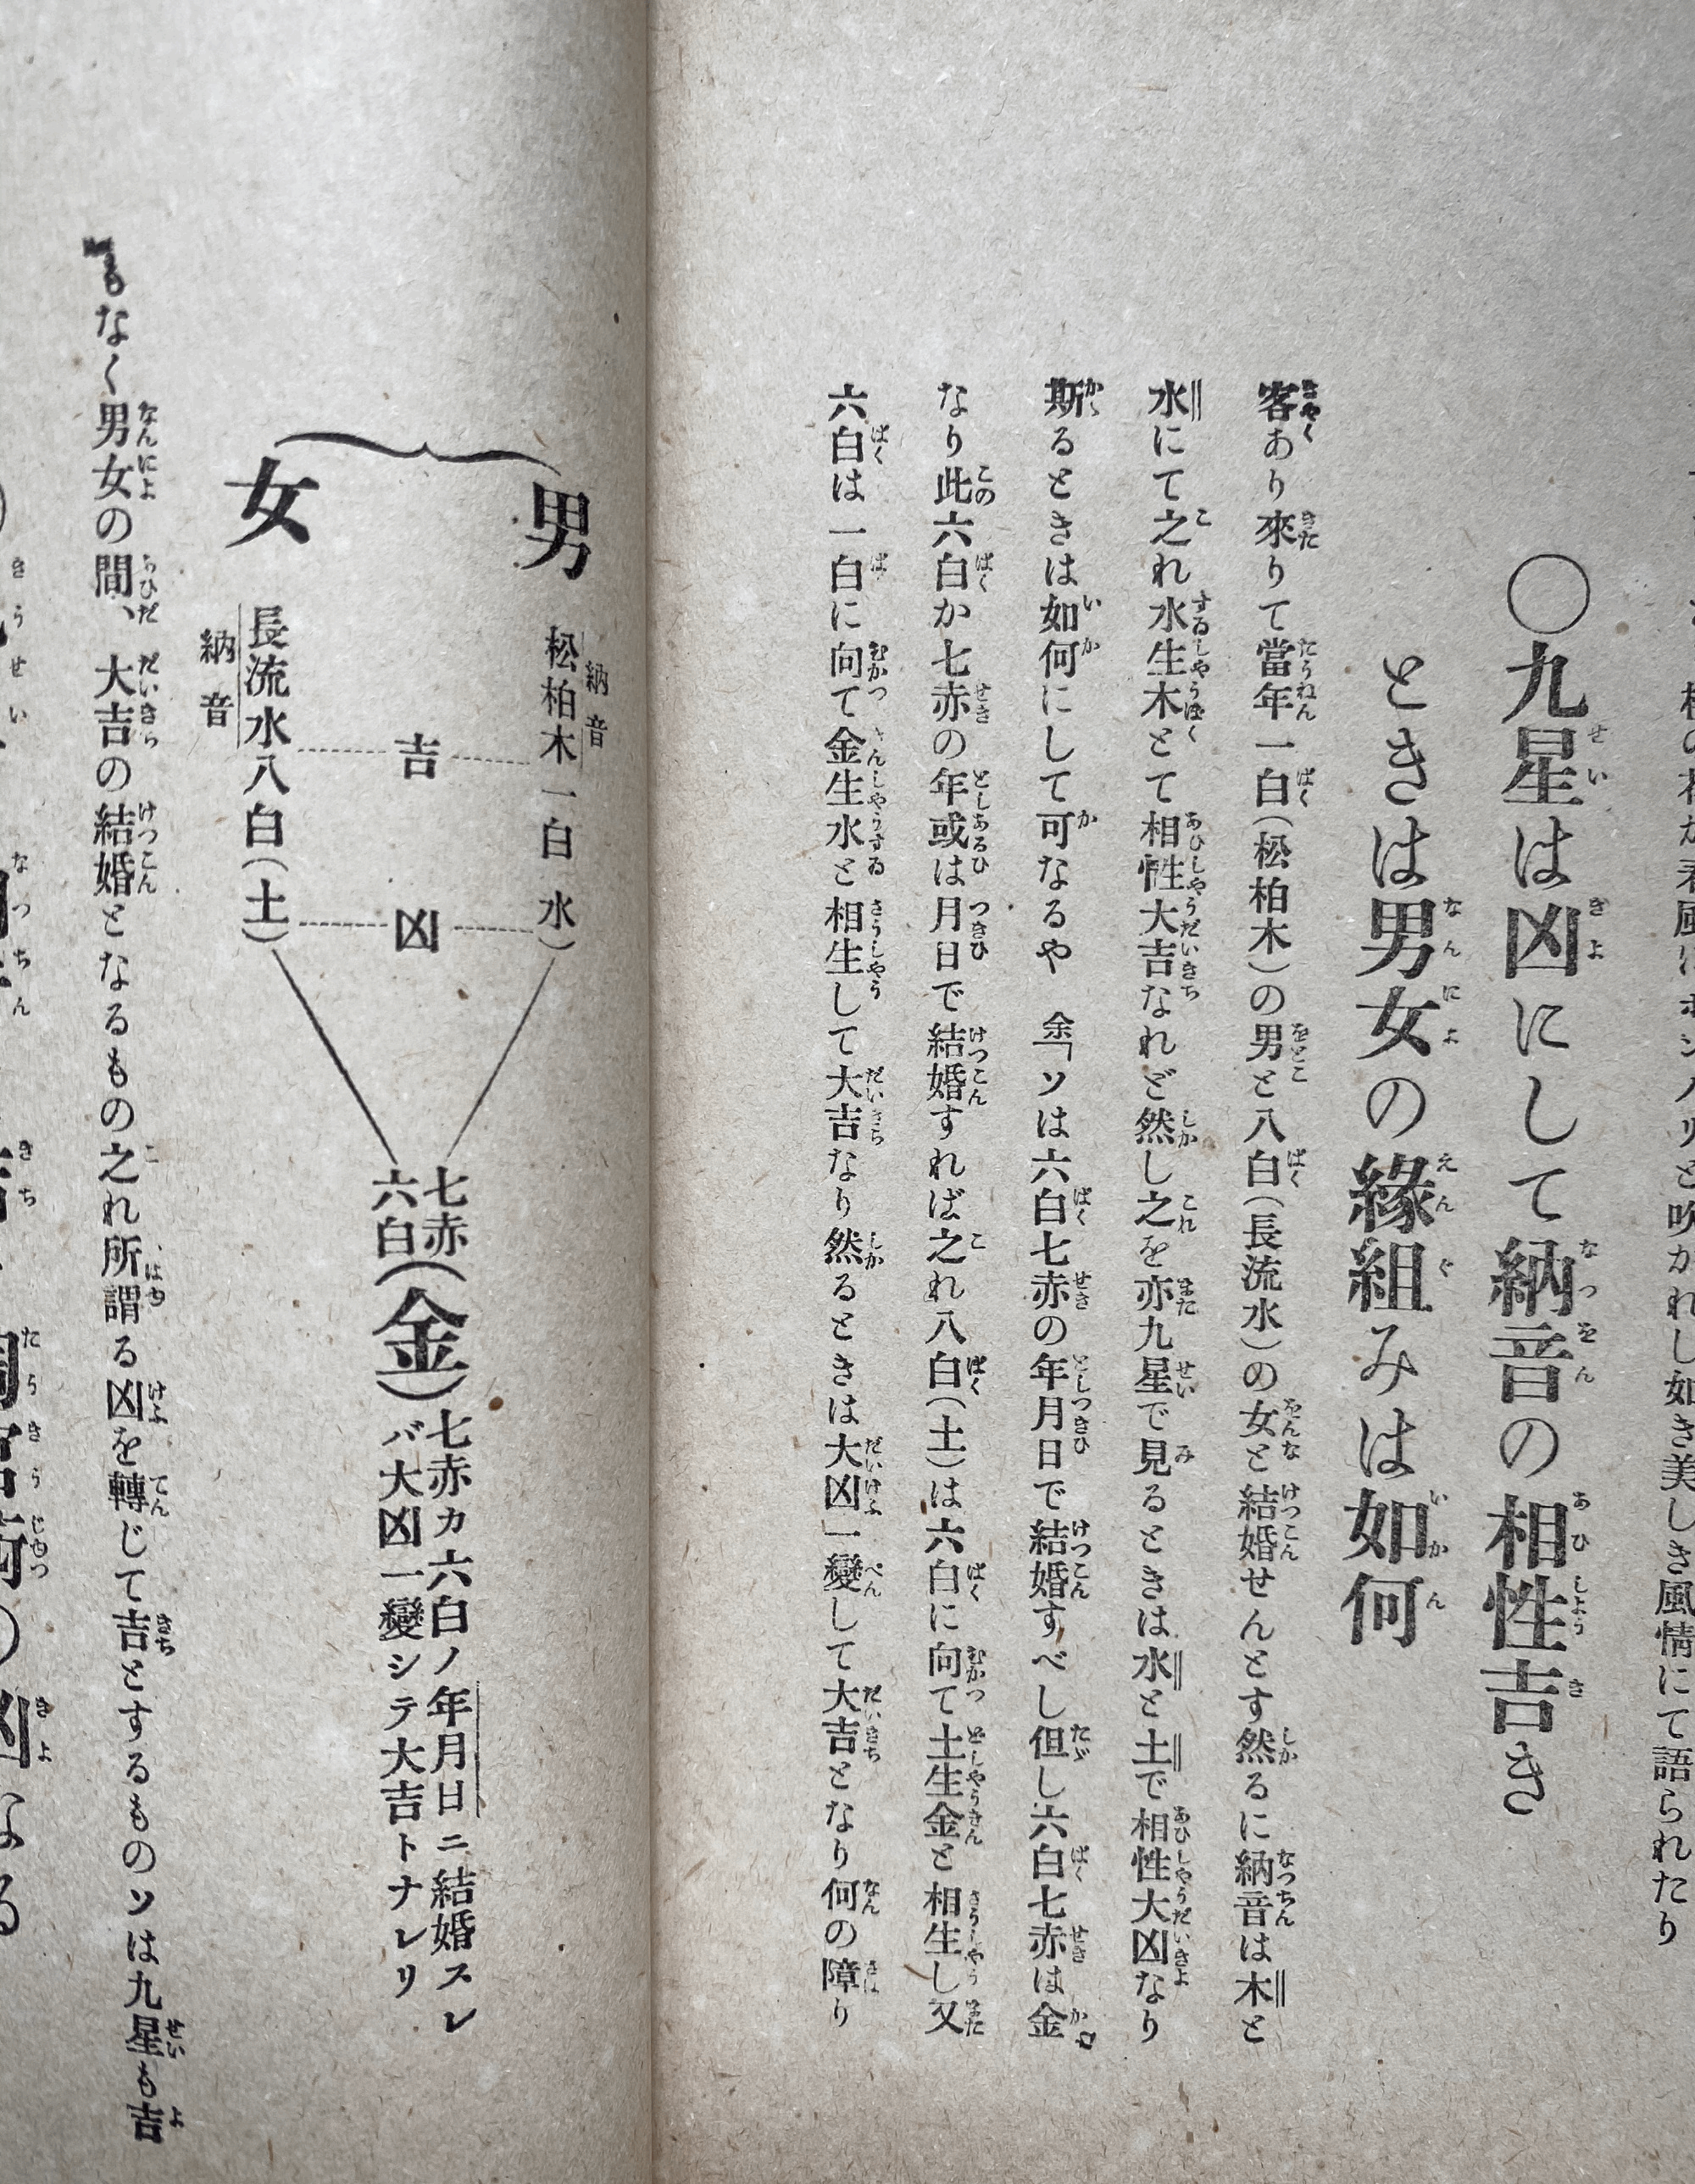 君風にホンノリと吹かれし如き美しき風情にて語られたり
〇九星は凶にして納音の相性吉き
ときは男女の緣組みは如何
客あり來りて當年一白（松柏木）の男と八白（長流水）の女と結婚せんとす然るに納音は木と
水にて之れ水生木とて相性大吉なれど然し之を亦九星で見るときは水と土で相性大凶なり
斯るときは如何にして可なるや　余「ソは六白七赤の年月日で結婚すべし但し六白七赤は金
なり此六白か七赤の年或は月日で結婚すれば之れ八白（土）は六白に向て土生金と相生し又
六白は一白に向て金生水と相生して大吉なり然るときは大凶一變して大吉となり何の障り
男
納音
松柏木一白水）
女
長流水八白（土）
納音
吉
凶
七赤
六白
（金）
七赤カ六白ノ年月日ニ結婚スレ
バ大凶一變シテ大吉トナレリ
もなく男女の間、大吉の結婚となるもの之れ所謂る凶を轉じて吉とするものソは九星も吉